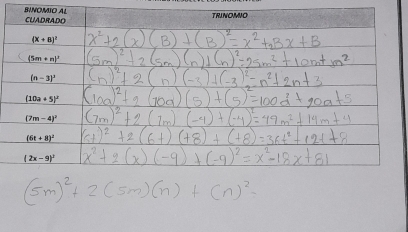 BINOMIO AL CUADRADO TRINOMIO
(x + B)² x²+2(x)(B)+(B)²=x²+2Bx+B
(5m + n)² (5m)²+2(5m)(n)+(n)²=25m²+10m+m²
(n – 3)² (n)²+2(n)(-3)+(-3)²=n²+2n+3
(10a + 5)² (10a)²+2(10a)(5)+(5)²=100a²+20a+5
(7m – 4)² (7m)²+2(7m)(-4)+(-4)=49m²+14m+4
(6t + 8)² (6t)²+2(6t)(+8)+(+8)=36t²+12t+8
( 2x – 9)² x²+2(x)(-9)+(-9)²=x²-18x+81
(5m)²+2(5m)(n)+(n)²=